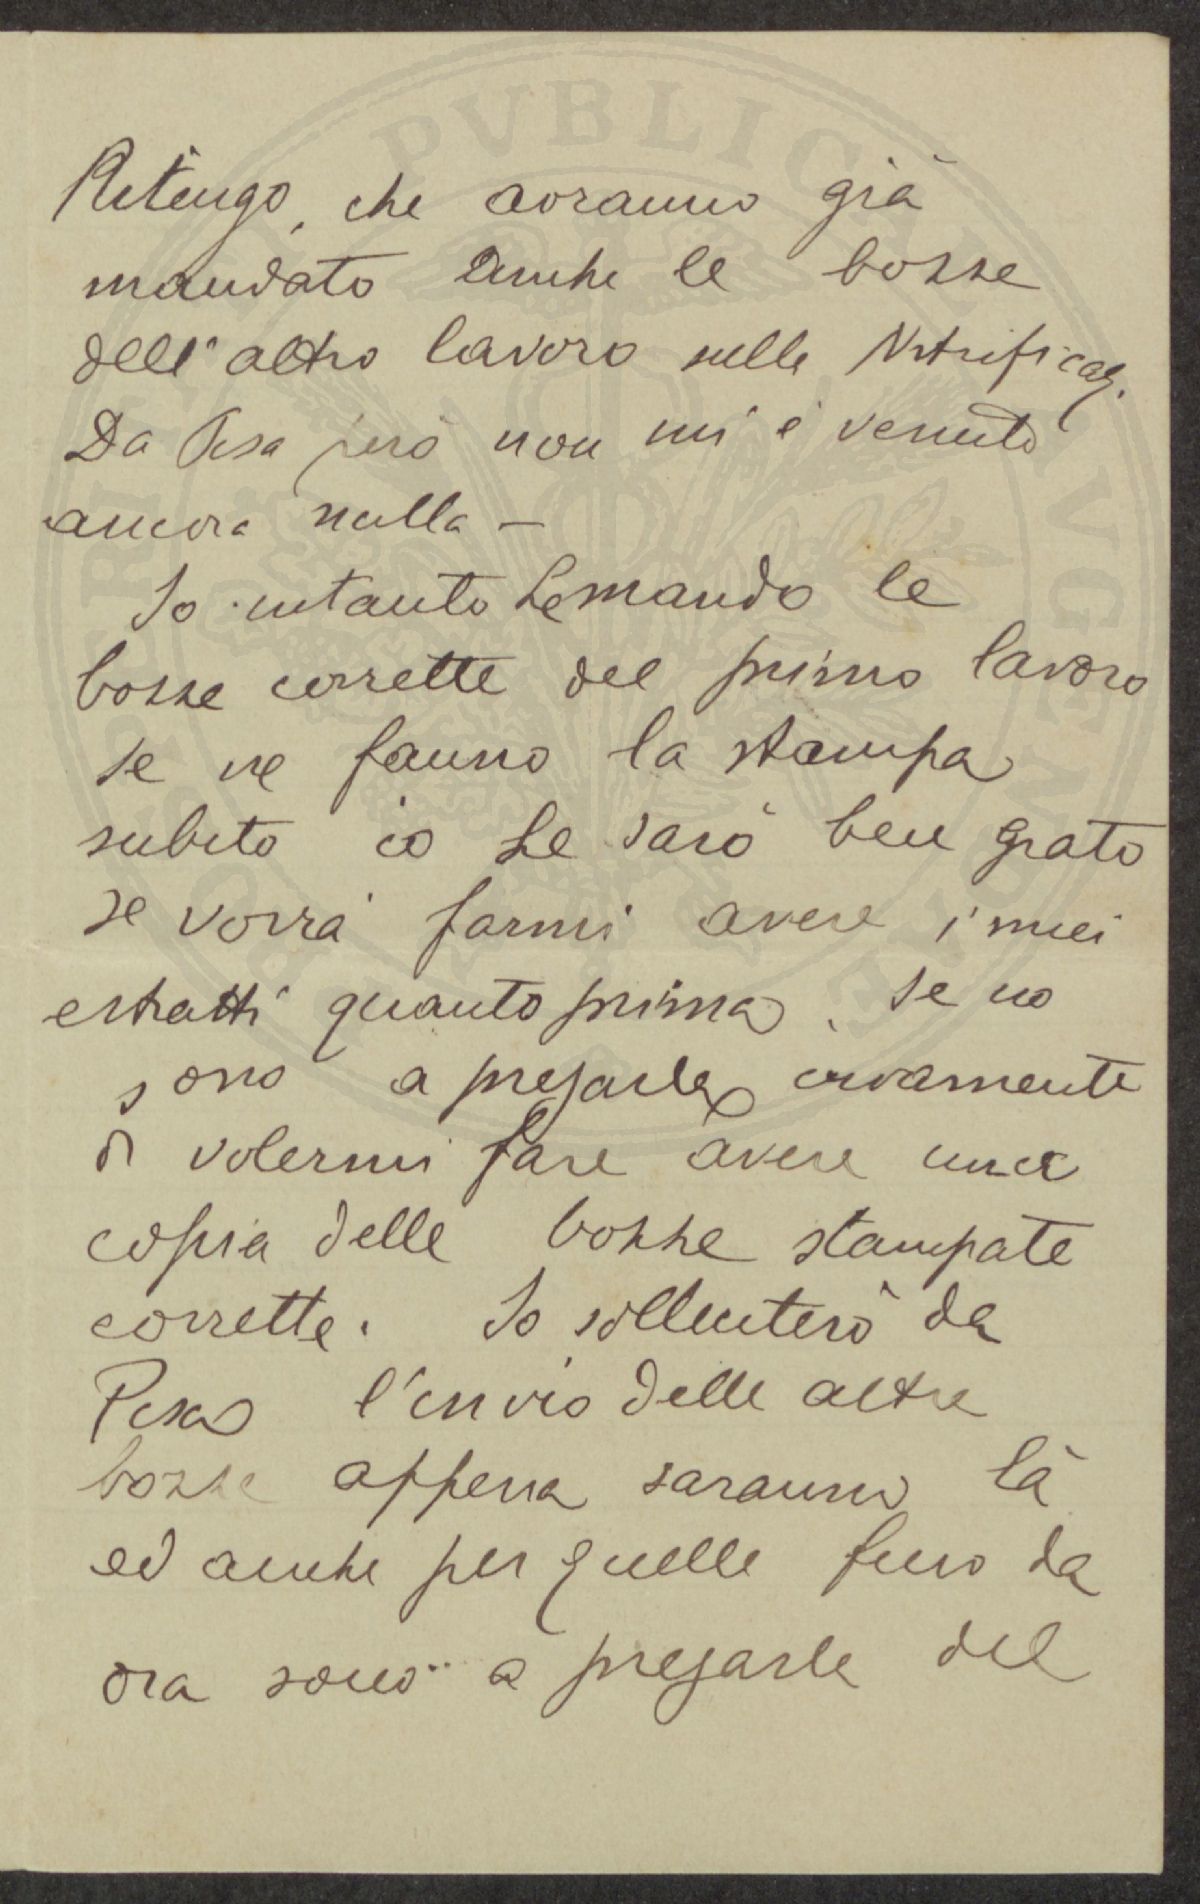 Ritengo, che avranno già
mandato anche le bozze
dell'altro lavoro sulla Nitrificaz.
Da Pisa però non mi è venuto
ancora nulla —
Io intanto Le mando le
bozze corrette del primo lavoro
se ne fanno la stampa
subito io Le sarò ben grato
se vorrà farmi avere i miei
estratti quanto prima. Se no
sono a pregarla vivamente
di volermi fare avere una
copia delle bozze stampate
corrette. Io solleciterò da
Pisa l'invio delle altre
bozze appena saranno là
ed anche per quelle fino da
ora sono a pregarla del